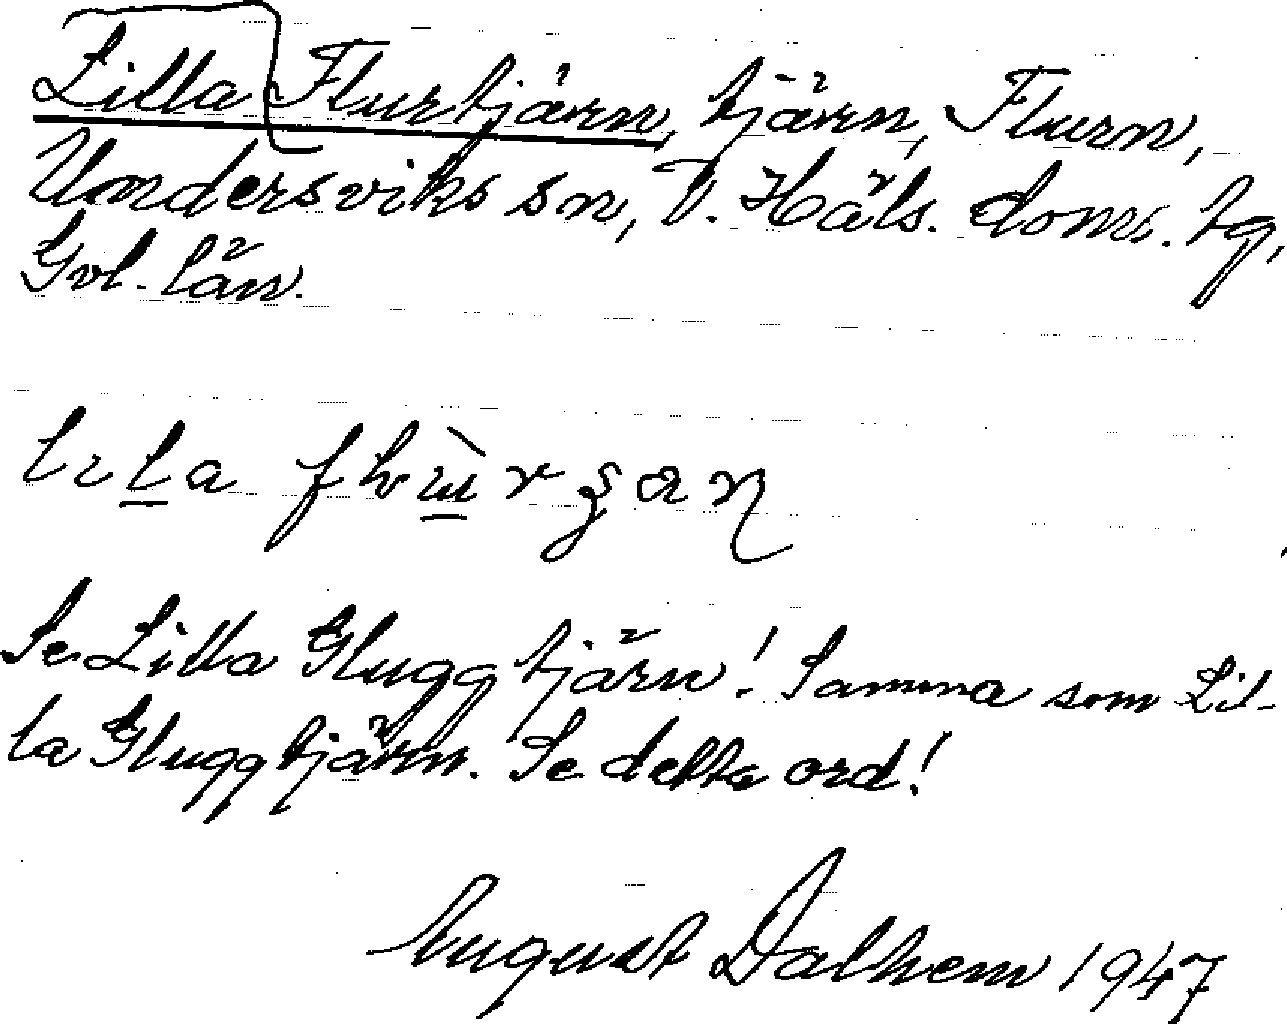 Lilla Flurtjärn, tjärn, Flurn,
Undersviks sn, V. Häls. doms. tg,
Gvl. län.
Se Lilla Gluggtjärn! Samma som Lil-
la Gluggtjärn. Se detta ord!
August Dalhem 1947